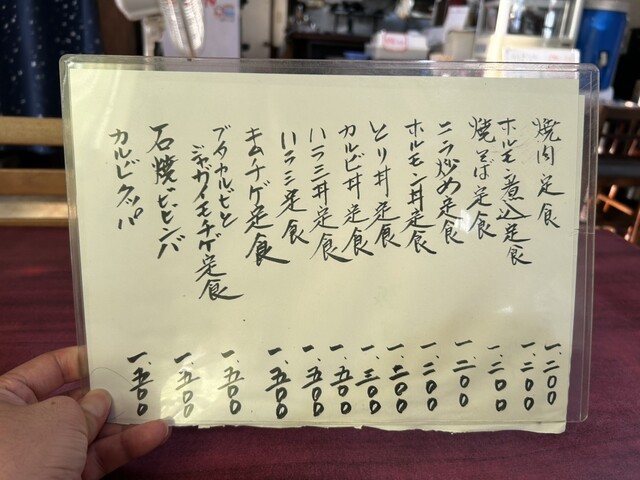 焼肉定食 一、二〇〇
ホルモン煮込定食 一、二〇〇
焼そば定食 一、二〇〇
ニラ炒め定食 一、二〇〇
ホルモン丼定食 一、二〇〇
とり丼定食 一、二〇〇
カルビ丼定食 一、三〇〇
ハラミ丼定食 一、五〇〇
ハラミ定食 一、五〇〇
キムチゲ定食 一、五〇〇
ブタカルビと
ジャガイモチゲ定食 一、五〇〇
石焼ビビンバ 一、五〇〇
カルビクッパ 一、五〇〇